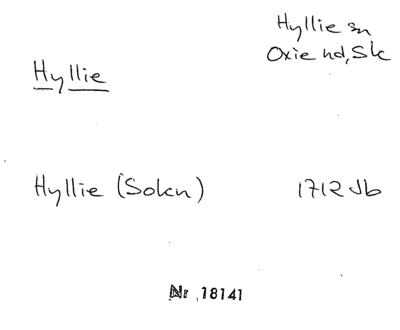 Hyllie sn
Oxie hd, Sk
Hyllie
Hyllie (Sokn) 1712 Jb
Nr 18141